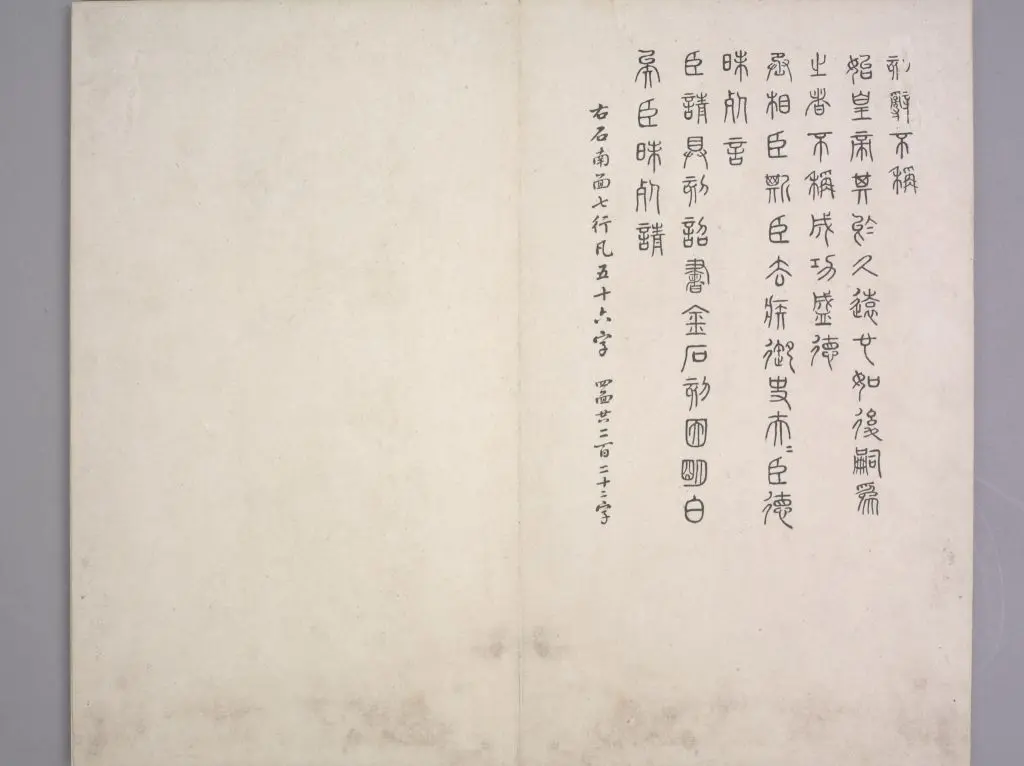 刻辭不稱
始皇帝其於久遠也如後嗣爲
之者不稱成功盛德
丞相臣斯臣去疾御史夫〻臣德
昧死言
臣請具刻詔書金石刻因明白
矣臣昧死請
右石南面七行凡五十六字 四面共二百二十二字